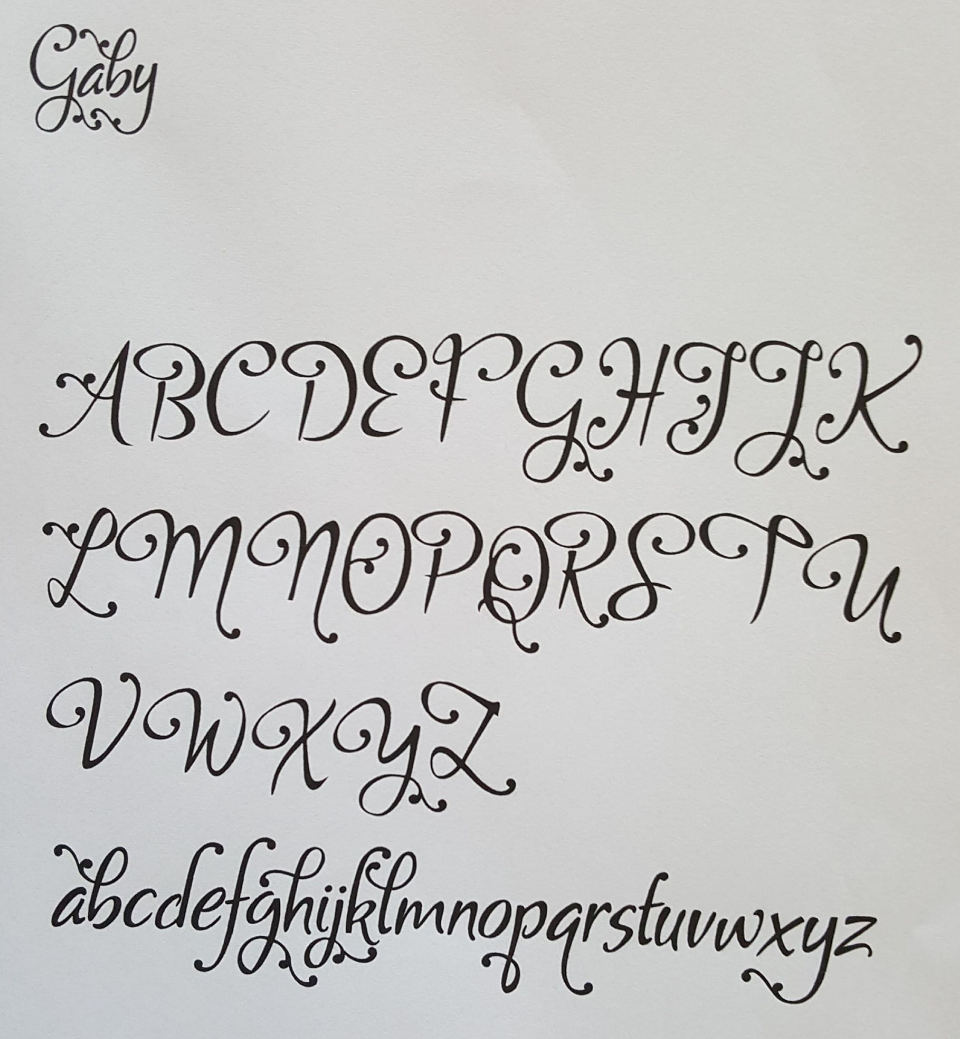 Gaby
ABCDEFGHIJK
LMNOPQRSTU
VWXYZ
abcdefghijklmnopqrstuvwxyz